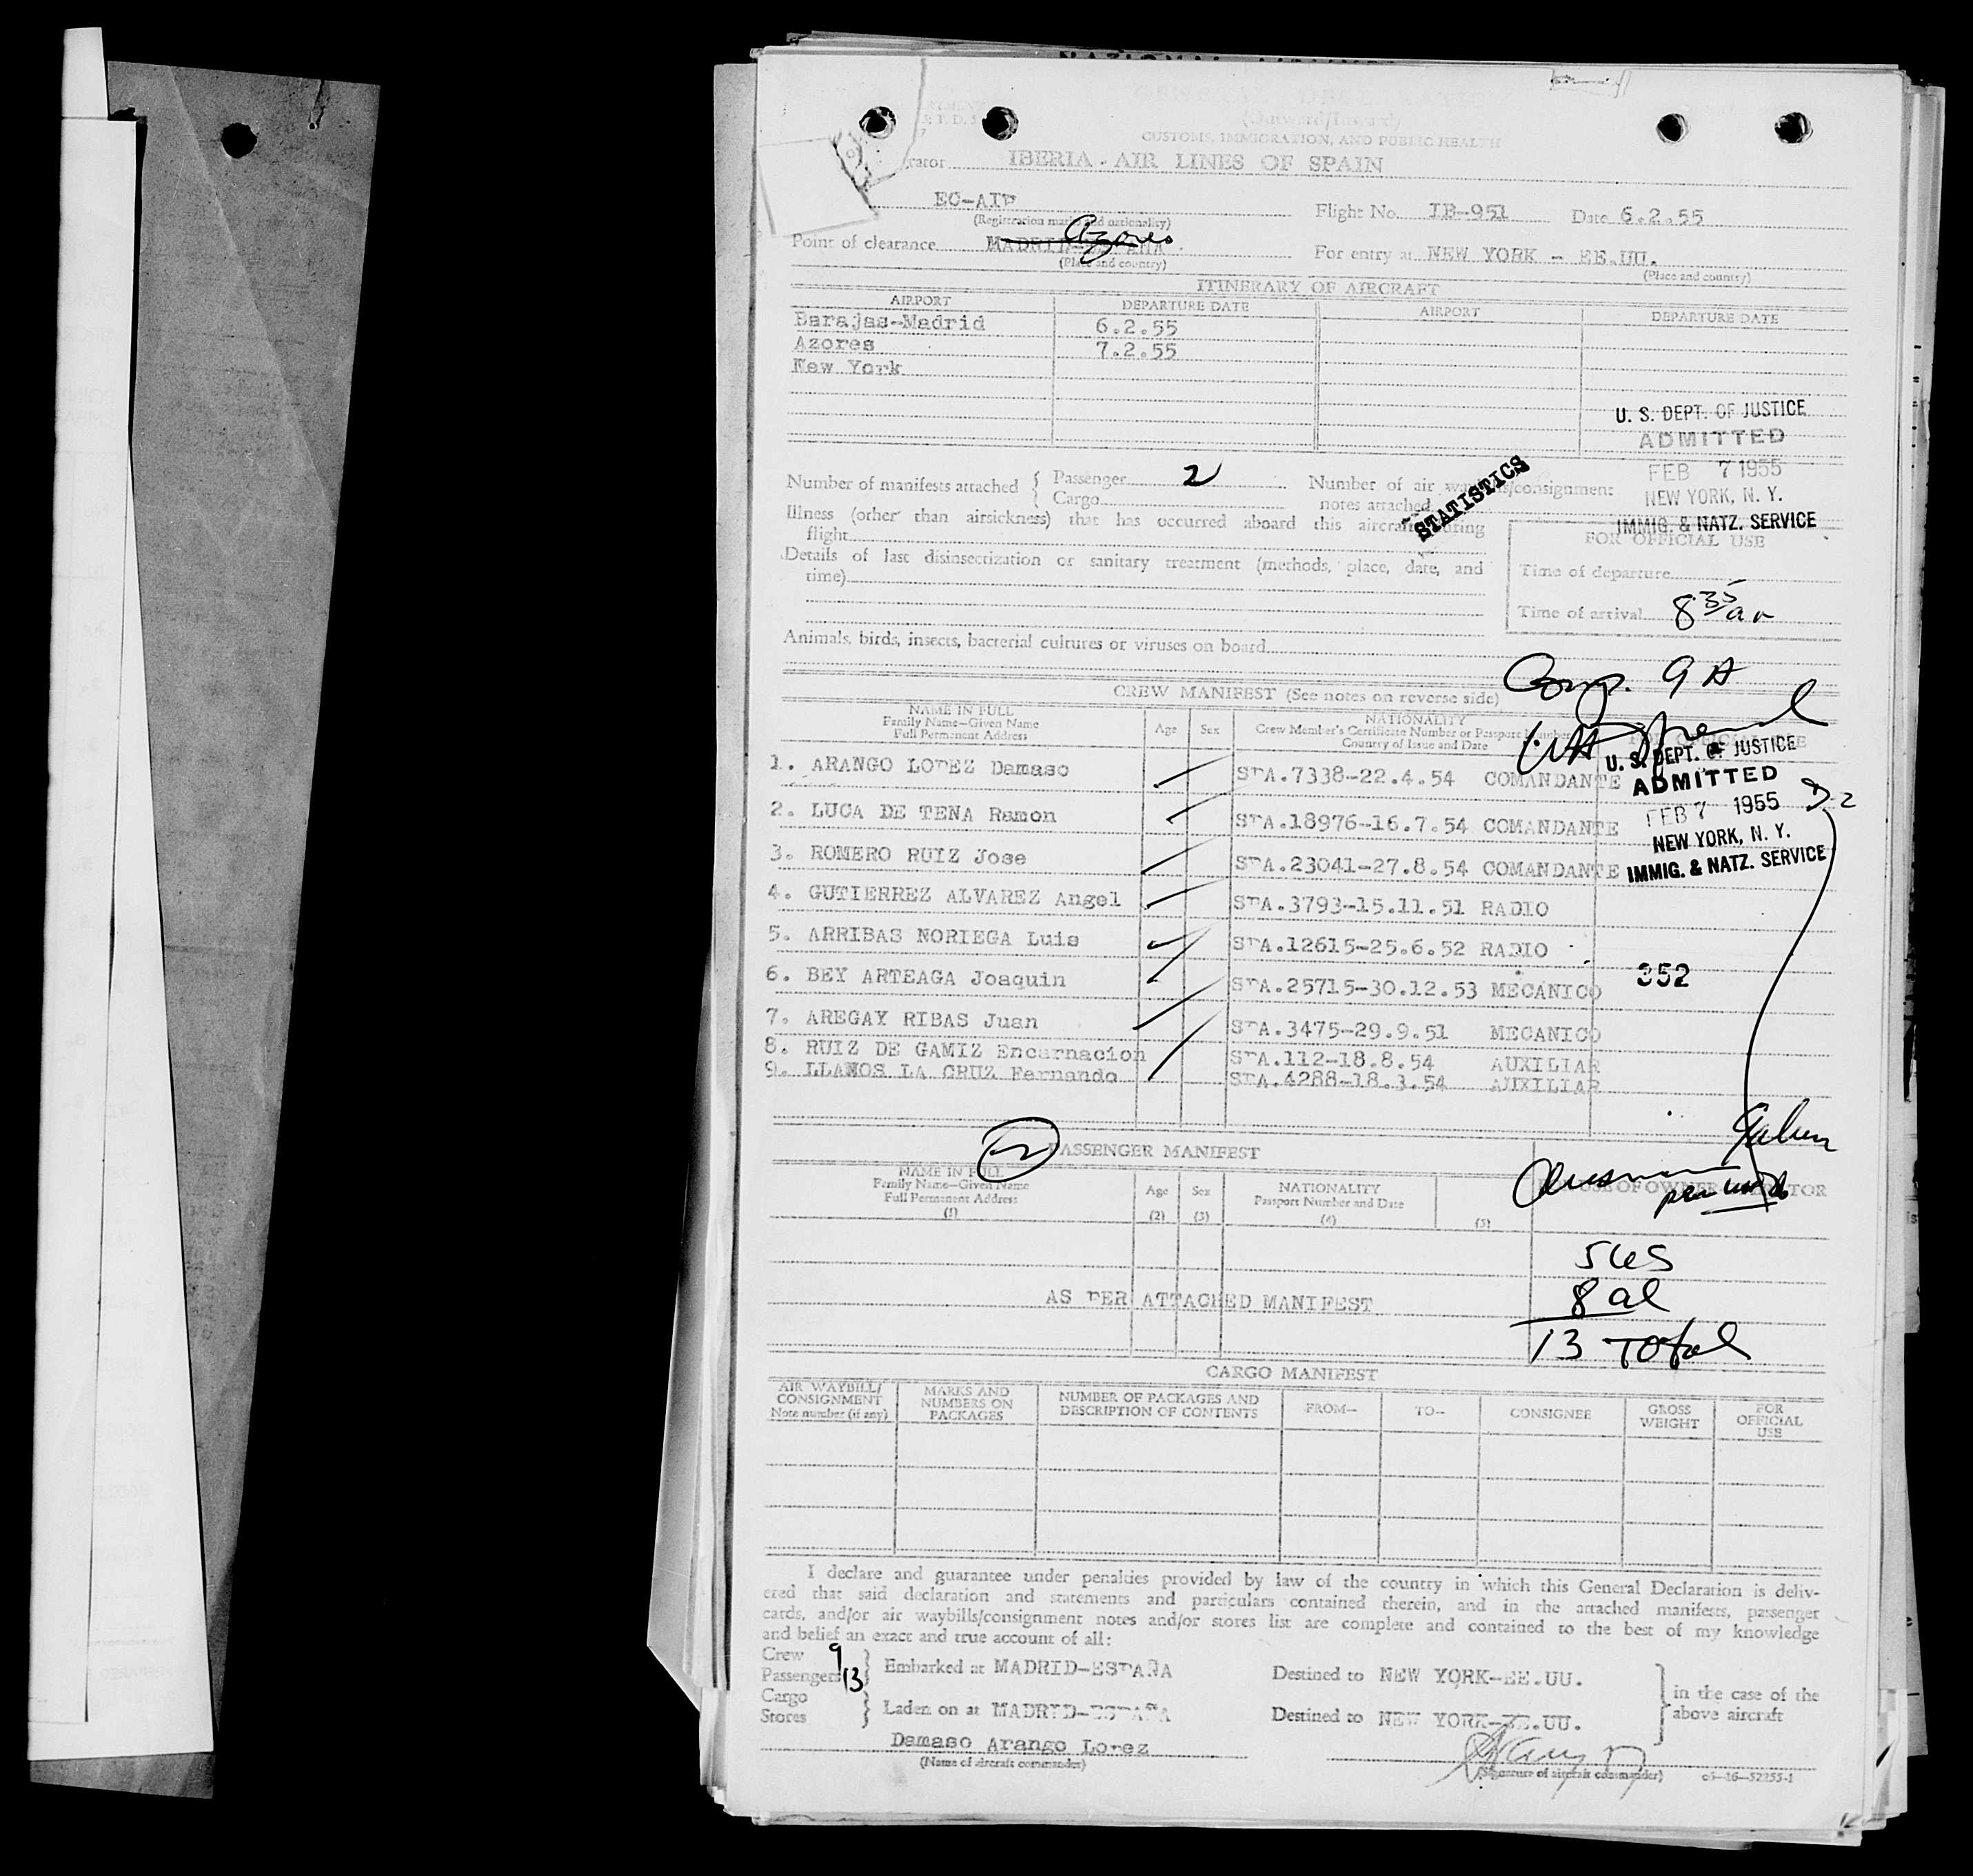 (Outward/Inward)
CUSTOMS, IMMIGRATION, AND PUBLIC HEALTH
IBERIA AIR LINES OF SPAIN
(Registration marks and nationality)
Flight No. IB-951 Date 6.2.55
Point of clearance Azores
(Place and country)
For entry at NEW YORK - EE.UU.
(Place and country)
ITINERARY OF AIRCRAFT
AIRPORT DEPARTURE DATE AIRPORT DEPARTURE DATE
Barajas-Madrid 6.2.55
Azores 7.2.55
New York
U. S. DEPT. OF JUSTICE
ADMITTED
FEB 7 1955
NEW YORK, N. Y.
IMMIG. & NATZ. SERVICE
Number of manifests attached { Passenger 2
Cargo
Number of air waybills/consignment
notes attached
STATISTICS
Illness (other than airsickness) that has occurred aboard this aircraft during
flight
Details of last disinsectization or sanitary treatment (methods, place, date, and
time)
FOR OFFICIAL USE
Time of departure
Time of arrival 8 35
Animals, birds, insects, bacterial cultures or viruses on board
CREW MANIFEST (See notes on reverse side)
NAME IN FULL
Family Name—Given Name
Full Permanent Address
Age Sex
NATIONALITY
Crew Member's Certificate Number or Passport Number
Country of Issue and Date
U. S. DEPT. OF JUSTICE
ADMITTED
FEB 7 1955
NEW YORK, N. Y.
IMMIG. & NATZ. SERVICE
1. ARANGO LOPEZ Damaso SPA.7338-22.4.54 COMANDANTE
2. LUCA DE TENA Ramon SPA.18976-16.7.54 COMANDANTE
3. ROMERO RUIZ Jose SPA.23041-27.8.54 COMANDANTE
4. GUTIERREZ ALVAREZ Angel SPA.3793-15.11.51 RADIO
5. ARRIBAS NORIEGA Luis SPA.12615-25.6.52 RADIO
6. BEY ARTEAGA Joaquin SPA.25715-30.12.53 MECANICO
352
7. AREGAY RIBAS Juan SPA.3475-29.9.51 MECANICO
8. RUIZ DE GAMIZ Encarnacion SPA.112-18.8.54 AUXILIAR
9. LLANOS LA CRUZ Fernando SPA.4288-18.3.54 AUXILIAR
PASSENGER MANIFEST
NAME IN FULL
Family Name—Given Name
Full Permanent Address
(1)
Age
(2)
Sex
(3)
NATIONALITY
Passport Number and Date
(4)
(5)
AS PER ATTACHED MANIFEST
5 US
8 al
13 Total
CARGO MANIFEST
AIR WAYBILL/
CONSIGNMENT
Note number (if any)
MARKS AND
NUMBERS ON
PACKAGES
NUMBER OF PACKAGES AND
DESCRIPTION OF CONTENTS
FROM—
TO—
CONSIGNEE
GROSS
WEIGHT
FOR
OFFICIAL
USE
I declare and guarantee under penalties provided by law of the country in which this General Declaration is deliv-
ered that said declaration and statements and particulars contained therein, and in the attached manifests, passenger
cards, and/or air waybills/consignment notes and/or stores list are complete and contained to the best of my knowledge
and belief an exact and true account of all:
Crew 9
Passengers 13
Embarked at MADRID-ESPAÑA Destined to NEW YORK-EE.UU.
Cargo
Stores
Laden on at MADRID-ESPAÑA Destined to NEW YORK-EE.UU.
in the case of the
above aircraft
Damaso Arango Lopez
(Name of aircraft commander)
(Signature of aircraft commander)
16—52255-1